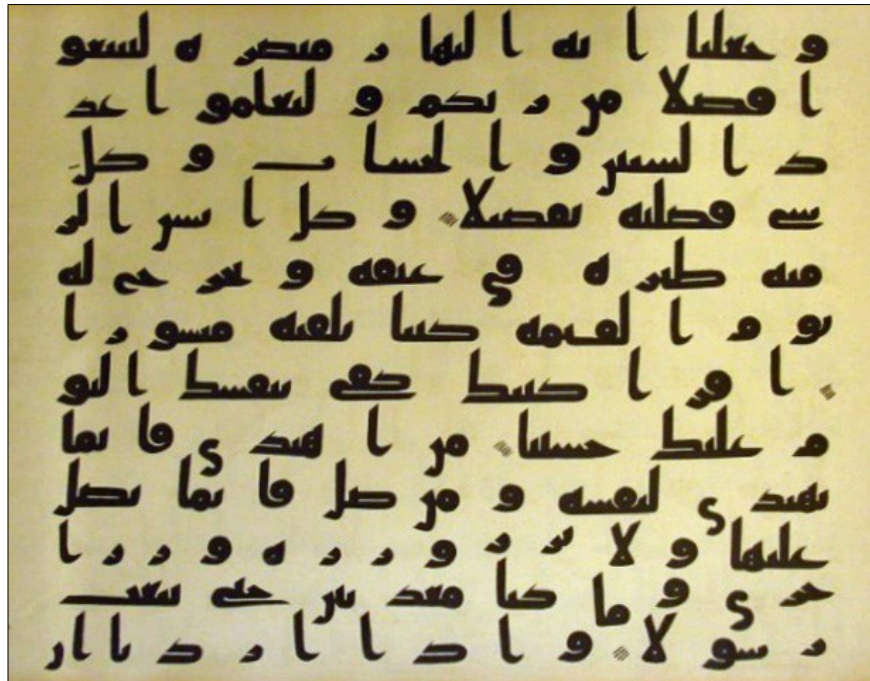 وجعلنا ايه النهار مبصره لتبتغو
ا فضلا من ربكم ولتعلموا عد
د السنين والحساب وكل
شي فصلنه تفصيلا وكل انسن الز
منه طيره في عنقه ونخرج له
يوم القيمه كتبا يلقيه منشورا
اقرا كتبك كفى بنفسك اليو
م عليك حسيبا من اهتدى فانما
يهتدي لنفسه ومن ضل فانما يضل
عليها ولا تزر وازره وزر ا
خرى وما كنا معذبين حتى نبعث
رسولا واذا اردنا ان